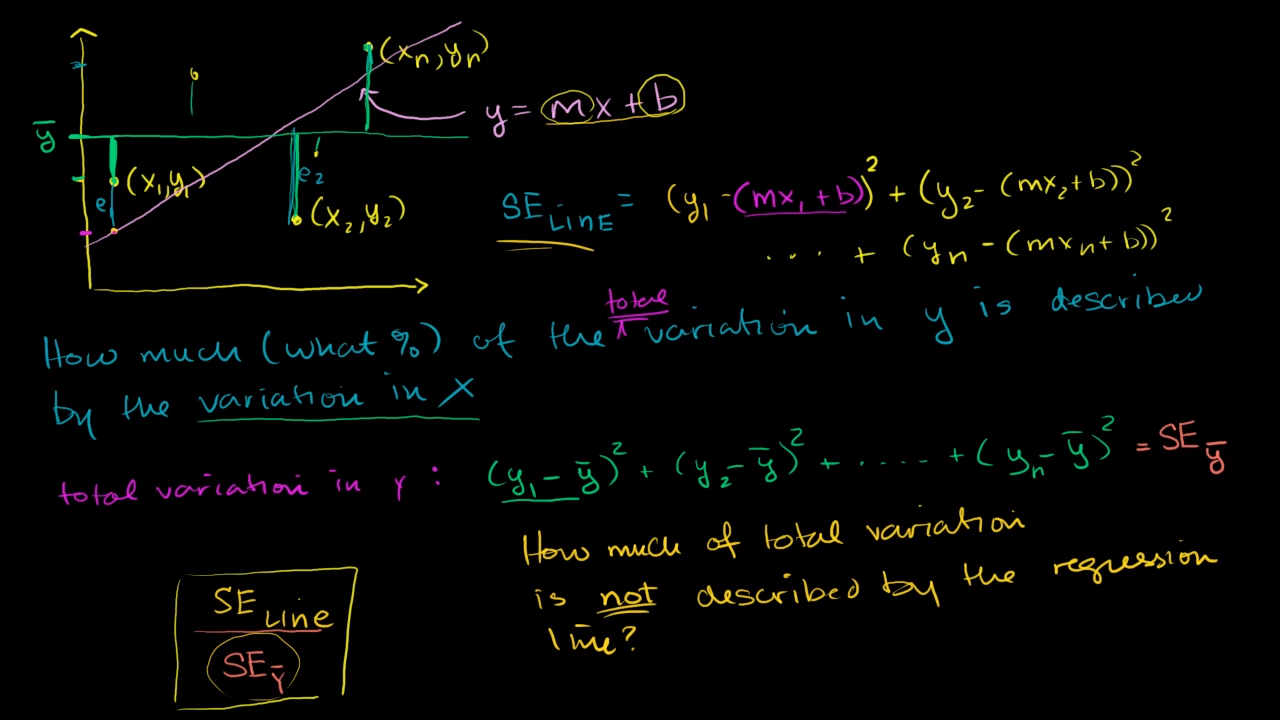 (xₙ, yₙ)
y = mx + b
ȳ
(x₁, y₁)
e₂
e
(x₂, y₂)
SE_LINE = (y₁ - (mx₁ + b))² + (y₂ - (mx₂ + b))²
... + (yₙ - (mxₙ + b))²
total
How much (what %) of the variation in y is described
by the variation in x
total variation in y : (y₁ - ȳ)² + (y₂ - ȳ)² + ..... + (yₙ - ȳ)² = SE_ȳ
How much of total variation
is not described by the regression
line?
SE_Line
SE_Ȳ